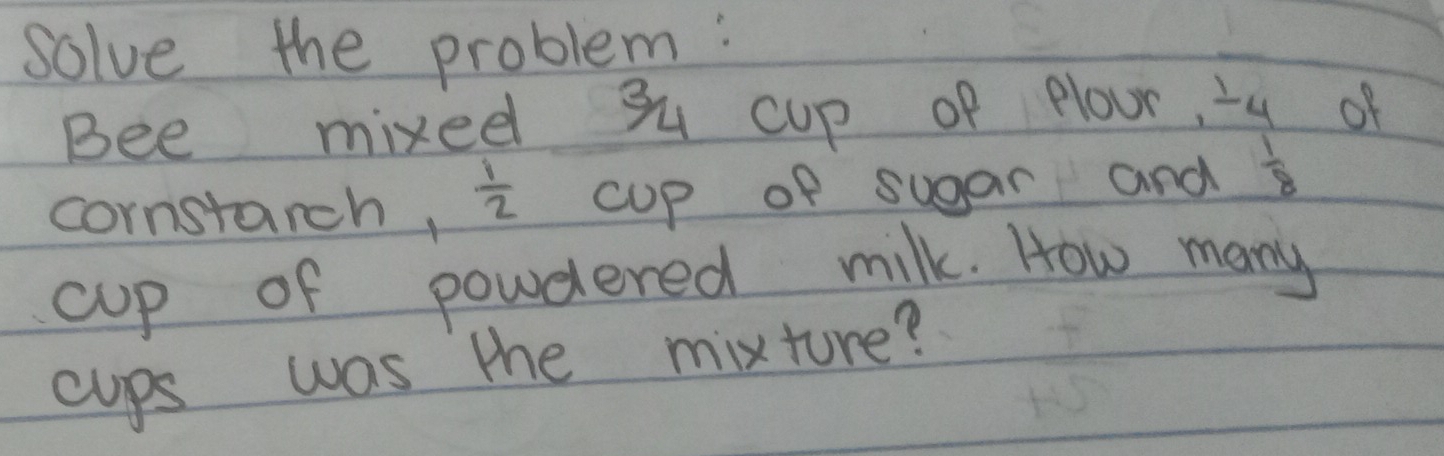 Solve the problem:
Bee mixed 3/4 cup of flour, 1/4 of
cornstarch, 1/2 cup of sugar and 1/8
cup of powdered milk. How many
cups was the mixture?